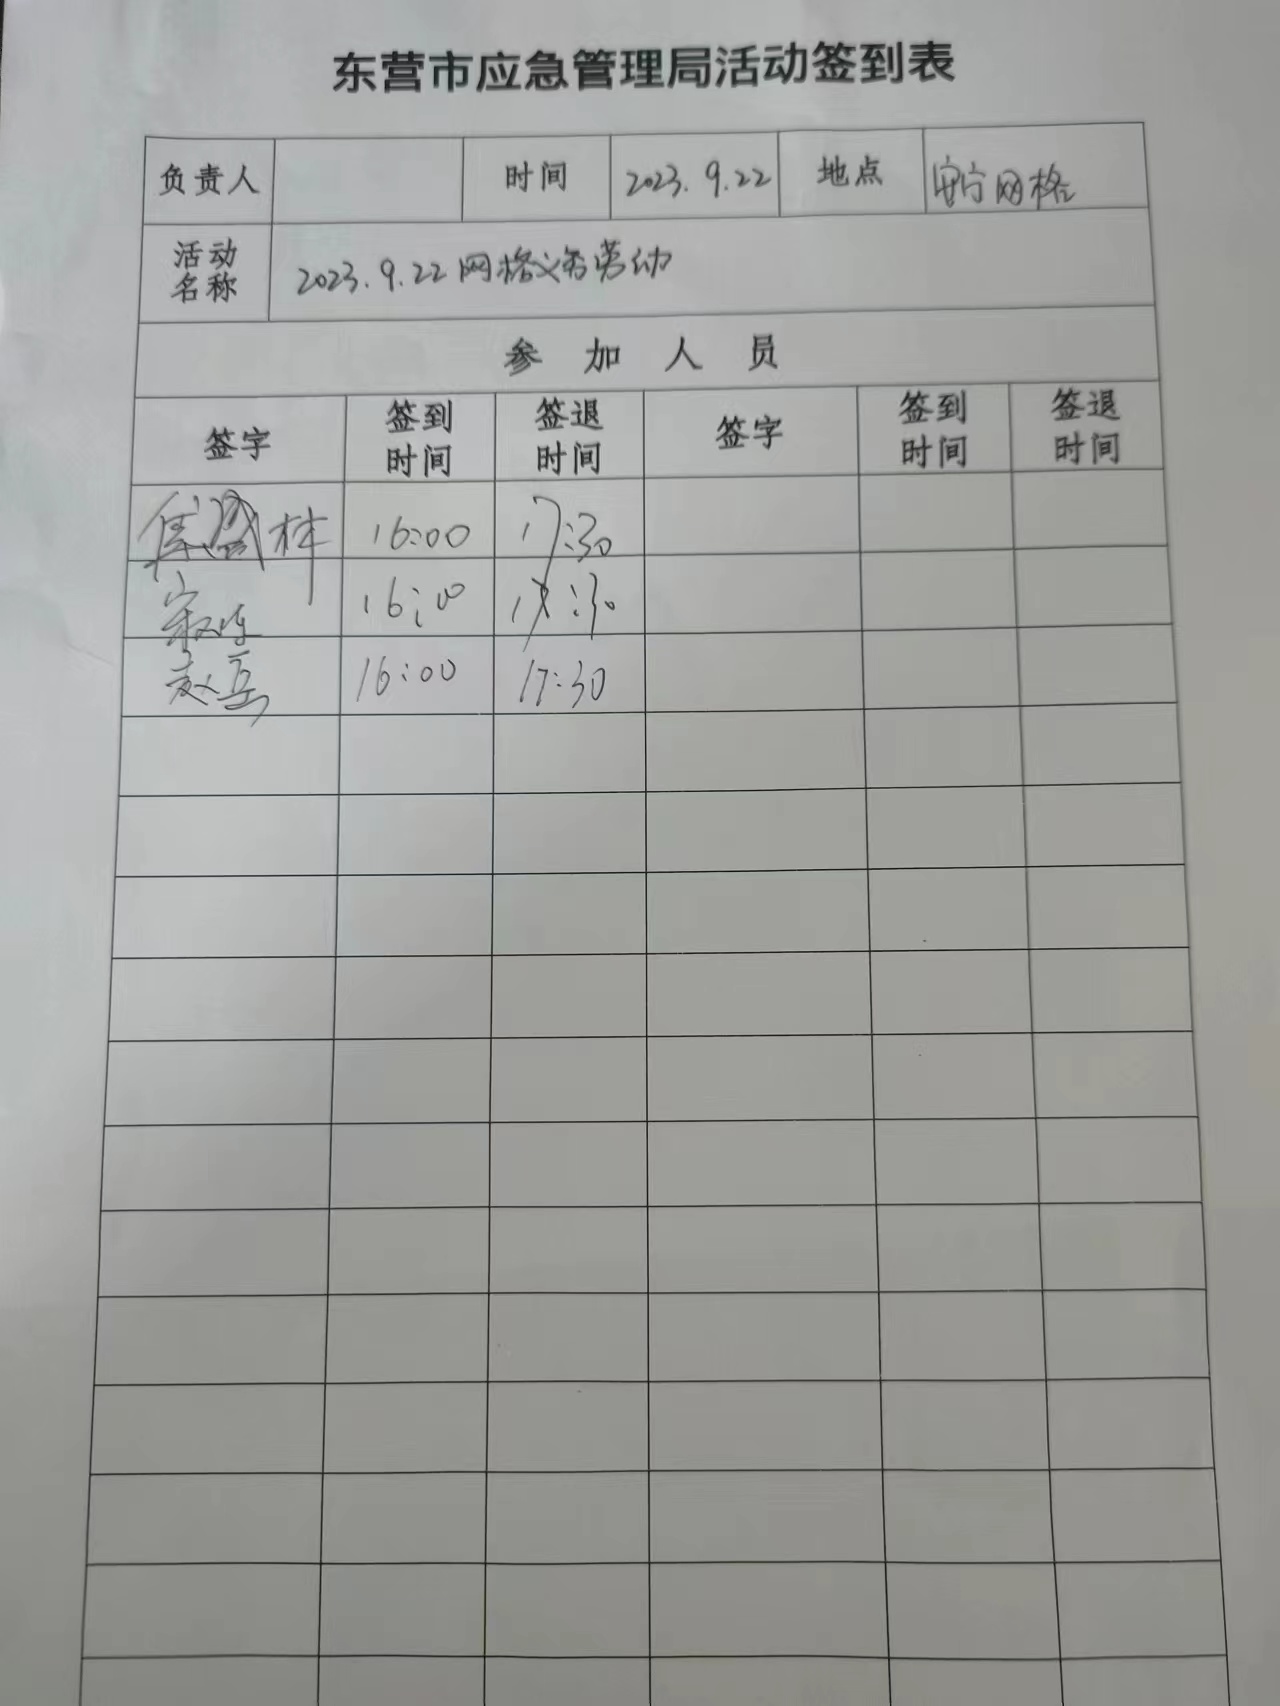 东营市应急管理局活动签到表
负责人 时间 2023.9.22 地点 安宁网格
活动名称 2023.9.22网格义务劳动
参加人员
签字 签到时间 签退时间 签字 签到时间 签退时间
林 16:00 17:30
16:00 17:30
赵岳 16:00 17:30